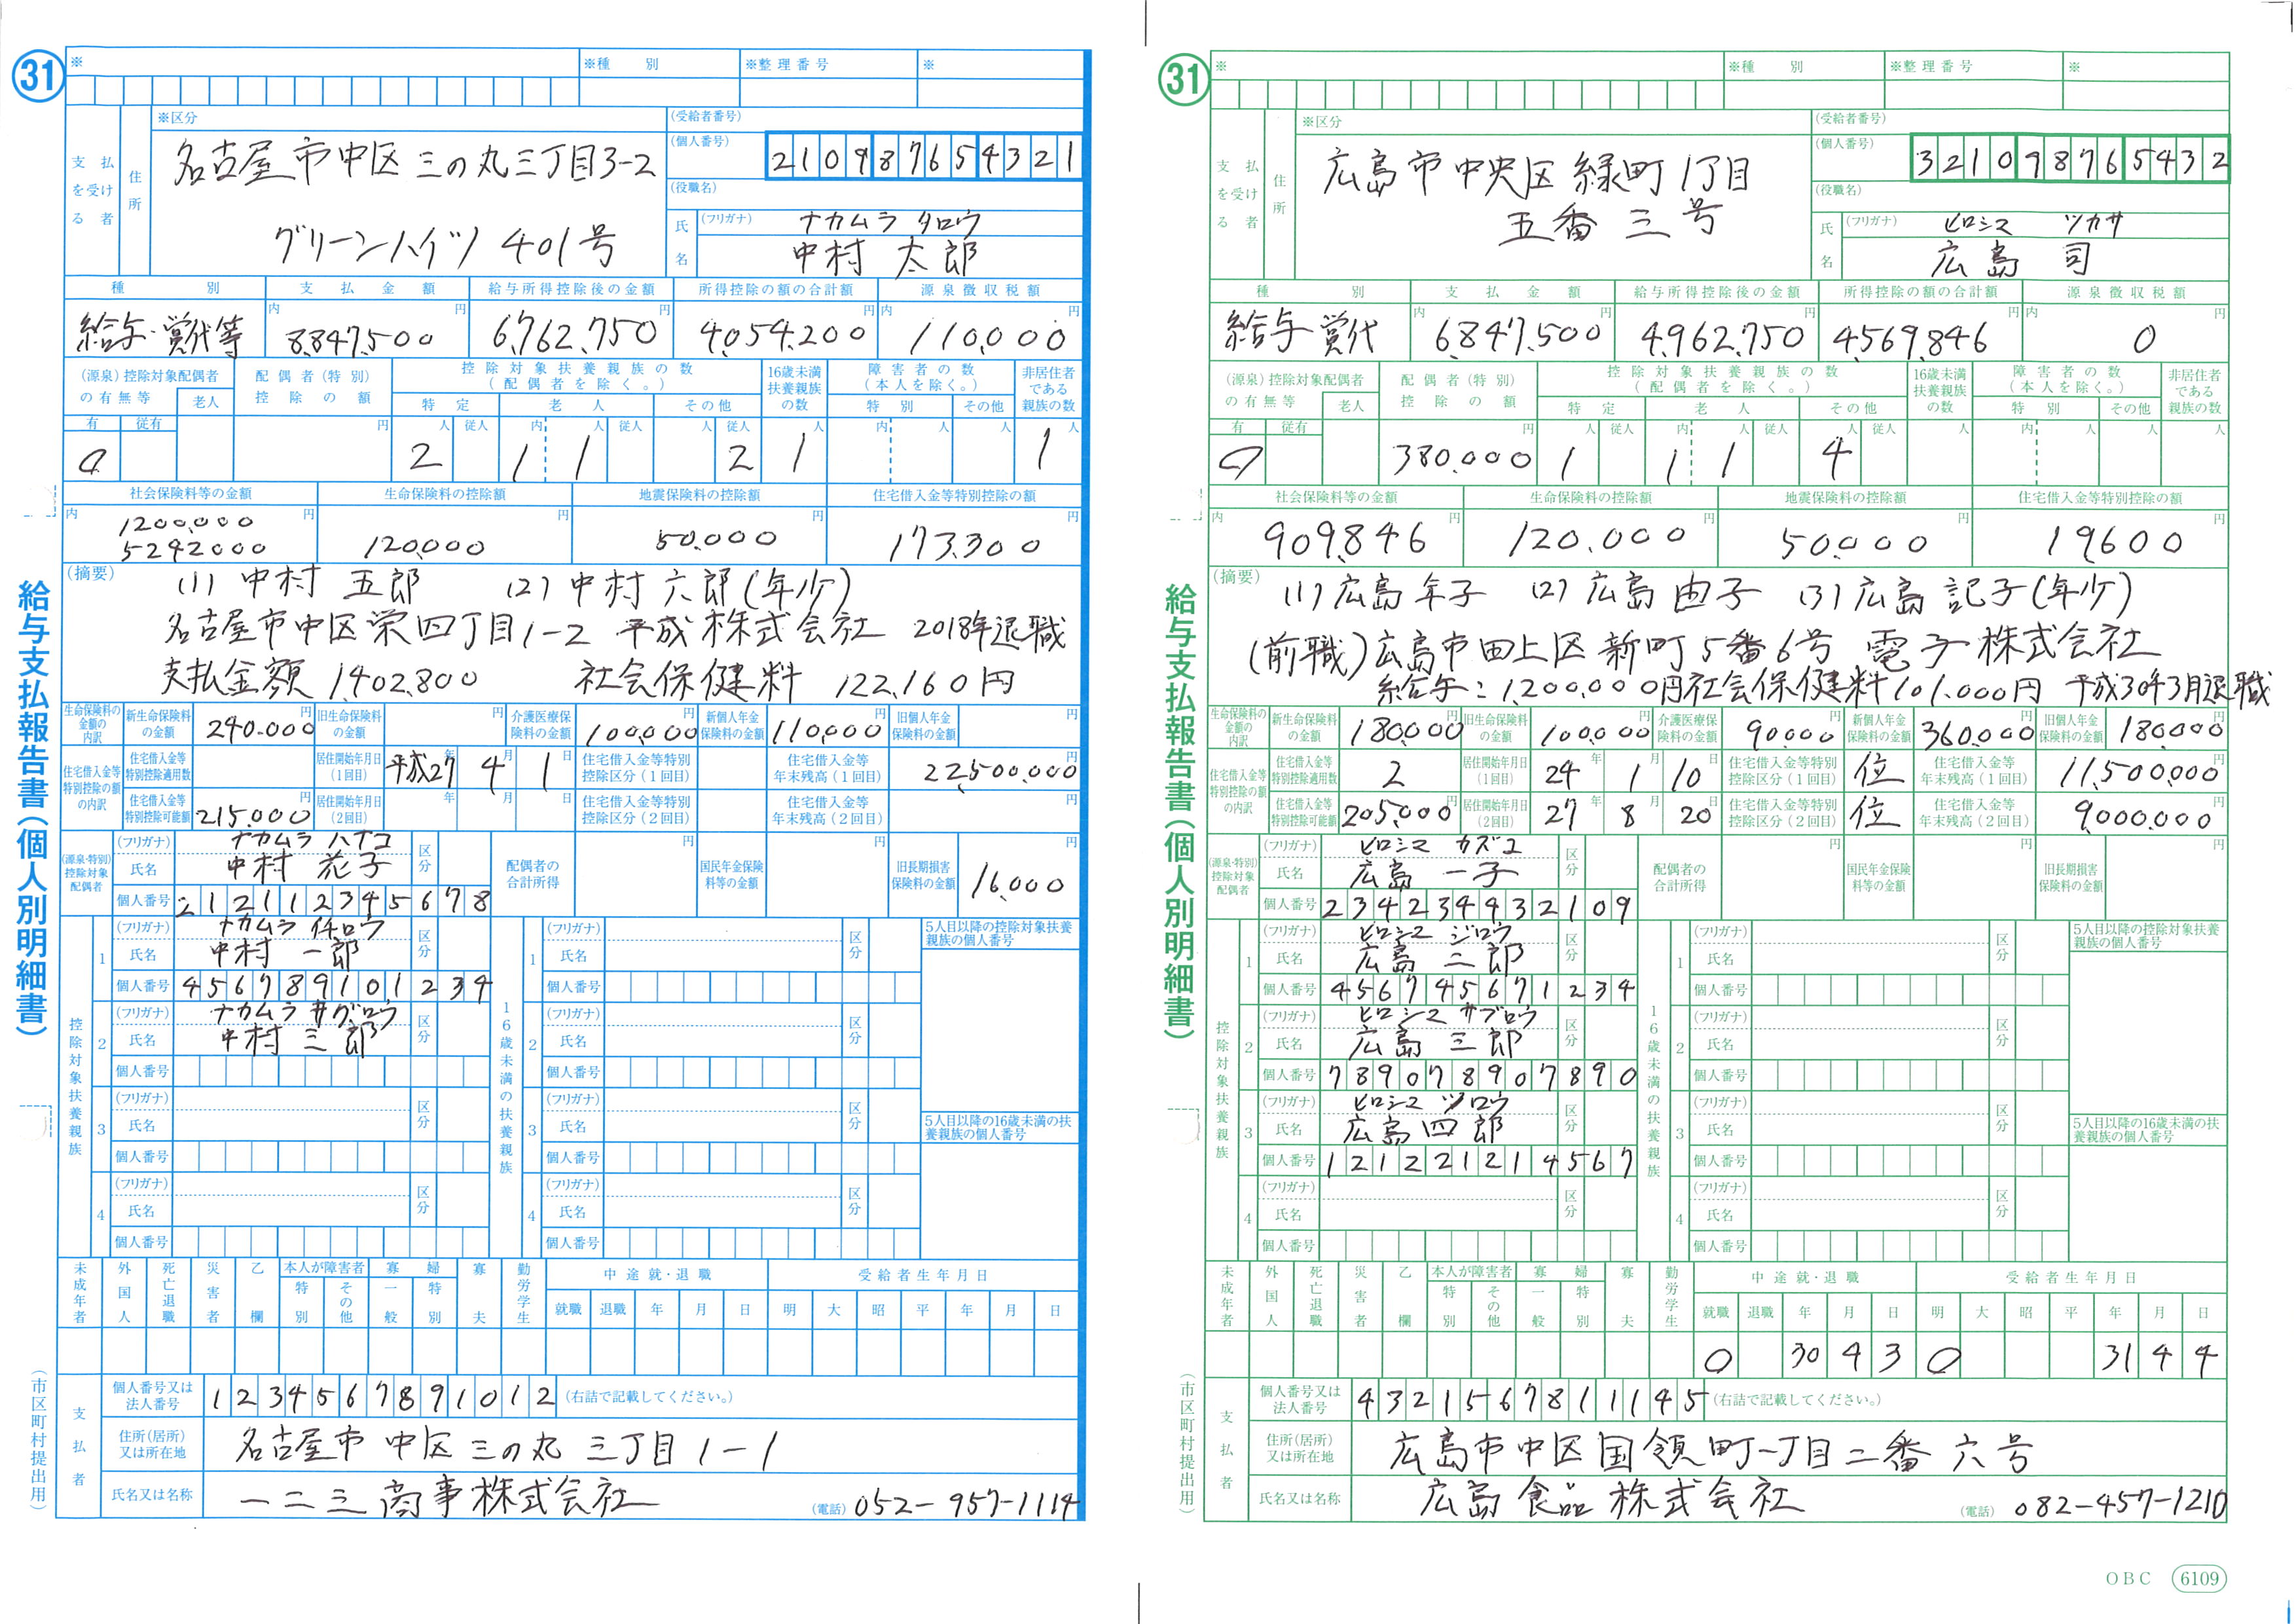 31
※
※種 別
※整理番号
※
支払を受ける者
住所
※区分
名古屋市中区三の丸三丁目3-2
グリーンハイツ 401号
(受給者番号)
(個人番号)
210987654321
(役職名)
氏名
(フリガナ)
ナカムラ タロウ
中村 太郎
種 別
支 払 金 額
給与所得控除後の金額
所得控除の額の合計額
源泉徴収税額
給与・賞代等
内 8,847,500 円
6,762,750 円
4,054,200 円
内 110,000 円
(源泉)控除対象配偶者の有無等
老人
配偶者(特別)控除の額
控除対象扶養親族の数(配偶者を除く。)
特定
老人
その他
16歳未満扶養親族の数
障害者の数(本人を除く。)
特別
その他
非居住者である親族の数
有 従有 円 人 従人 内 人 従人 人 従人 人 内 人 人 人
2 1 1 2 1 1
社会保険料等の金額
生命保険料の控除額
地震保険料の控除額
住宅借入金等特別控除の額
内 1200,000 円
5292000
120,000 円
50,000 円
173,300 円
(摘要)
(1) 中村 五郎 (2) 中村 六郎(年少)
名古屋市中区栄四丁目1-2 平成株式会社 2018年退職
支払金額 1,402,800 社会保健料 122,160円
生命保険料の金額の内訳
新生命保険料の金額
240,000 円
旧生命保険料の金額
円
介護医療保険料の金額
100,000 円
新個人年金保険料の金額
110,000 円
旧個人年金保険料の金額
円
住宅借入金等特別控除の額の内訳
住宅借入金等特別控除適用数
居住開始年月日(1回目)
平成27年 4月 1日
住宅借入金等特別控除区分(1回目)
住宅借入金等年末残高(1回目)
22,500,000 円
住宅借入金等特別控除可能額
215,000 円
居住開始年月日(2回目)
年 月 日
住宅借入金等特別控除区分(2回目)
住宅借入金等年末残高(2回目)
円
(源泉・特別)控除対象配偶者
(フリガナ)
ナカムラ ハナコ
氏名
中村 花子
区分
個人番号
212112345678
配偶者の合計所得
円
国民年金保険料等の金額
円
旧長期損害保険料の金額
16,000 円
控除対象扶養親族
1
(フリガナ)
ナカムラ イチロウ
氏名
中村 一郎
区分
個人番号
456789101234
2
(フリガナ)
ナカムラ サブロウ
氏名
中村 三郎
区分
個人番号
3
(フリガナ)
氏名
区分
個人番号
4
(フリガナ)
氏名
区分
個人番号
16歳未満の扶養親族
1
(フリガナ)
氏名
区分
個人番号
2
(フリガナ)
氏名
区分
個人番号
3
(フリガナ)
氏名
区分
個人番号
4
(フリガナ)
氏名
区分
個人番号
5人目以降の控除対象扶養親族の個人番号
5人目以降の16歳未満の扶養親族の個人番号
未成年者
外国人
死亡退職
災害者
乙欄
本人が障害者
特別
その他
寡婦
一般
特別
寡夫
勤労学生
中途就・退職
就職 退職 年 月 日
受給者生年月日
明 大 昭 平 年 月 日
支払者
個人番号又は法人番号
1234567891012
(右詰で記載してください。)
住所(居所)又は所在地
名古屋市中区三の丸 三丁目1-1
氏名又は名称
一二三商事株式会社
(電話) 052-957-1114
給与支払報告書(個人別明細書)
(市区町村提出用)
31
※
※種 別
※整理番号
※
支払を受ける者
住所
※区分
広島市中央区緑町1丁目
五番三号
(受給者番号)
(個人番号)
321098765432
(役職名)
氏名
(フリガナ)
ヒロシマ ツカサ
広島 司
種 別
支 払 金 額
給与所得控除後の金額
所得控除の額の合計額
源泉徴収税額
給与 賞代
内 6,847,500 円
4,962,750 円
4,569,846 円
内 0 円
(源泉)控除対象配偶者の有無等
老人
配偶者(特別)控除の額
控除対象扶養親族の数(配偶者を除く。)
特定
老人
その他
16歳未満扶養親族の数
障害者の数(本人を除く。)
特別
その他
非居住者である親族の数
有 従有 円 人 従人 内 人 従人 人 従人 人 内 人 人 人
380,000 1 1 1 4
社会保険料等の金額
生命保険料の控除額
地震保険料の控除額
住宅借入金等特別控除の額
内 909,846 円
120,000 円
50,000 円
19,600 円
(摘要)
(1) 広島 年子 (2) 広島 由子 (3) 広島 記子(年少)
(前職)広島市田上区新町5番6号 電子株式会社
給与:1,200,000円社会保健料101,000円 平成30年3月退職
生命保険料の金額の内訳
新生命保険料の金額
180,000 円
旧生命保険料の金額
100,000 円
介護医療保険料の金額
90,000 円
新個人年金保険料の金額
360,000 円
旧個人年金保険料の金額
180,000 円
住宅借入金等特別控除の額の内訳
住宅借入金等特別控除適用数
2
居住開始年月日(1回目)
24年 1月 10日
住宅借入金等特別控除区分(1回目)
住
住宅借入金等年末残高(1回目)
11,500,000 円
住宅借入金等特別控除可能額
205,000 円
居住開始年月日(2回目)
27年 8月 20日
住宅借入金等特別控除区分(2回目)
住
住宅借入金等年末残高(2回目)
9,000,000 円
(源泉・特別)控除対象配偶者
(フリガナ)
ヒロシマ カズコ
氏名
広島 一子
区分
個人番号
234234432109
配偶者の合計所得
円
国民年金保険料等の金額
円
旧長期損害保険料の金額
円
控除対象扶養親族
1
(フリガナ)
ヒロシマ ジロウ
氏名
広島 二郎
区分
個人番号
456745671234
2
(フリガナ)
ヒロシマ サブロウ
氏名
広島 三郎
区分
個人番号
789078907890
3
(フリガナ)
ヒロシマ シロウ
氏名
広島四郎
区分
個人番号
121221214567
4
(フリガナ)
氏名
区分
個人番号
16歳未満の扶養親族
1
(フリガナ)
氏名
区分
個人番号
2
(フリガナ)
氏名
区分
個人番号
3
(フリガナ)
氏名
区分
個人番号
4
(フリガナ)
氏名
区分
個人番号
5人目以降の控除対象扶養親族の個人番号
5人目以降の16歳未満の扶養親族の個人番号
未成年者
外国人
死亡退職
災害者
乙欄
本人が障害者
特別
その他
寡婦
一般
特別
寡夫
勤労学生
中途就・退職
就職 退職 年 月 日
受給者生年月日
明 大 昭 平 年 月 日
0 30 4 3 0 31 4 4
支払者
個人番号又は法人番号
4321567811145
(右詰で記載してください。)
住所(居所)又は所在地
広島市中区国領町一丁目二番 六号
氏名又は名称
広島食品株式会社
(電話) 082-457-1210
給与支払報告書(個人別明細書)
(市区町村提出用)
OBC 6109